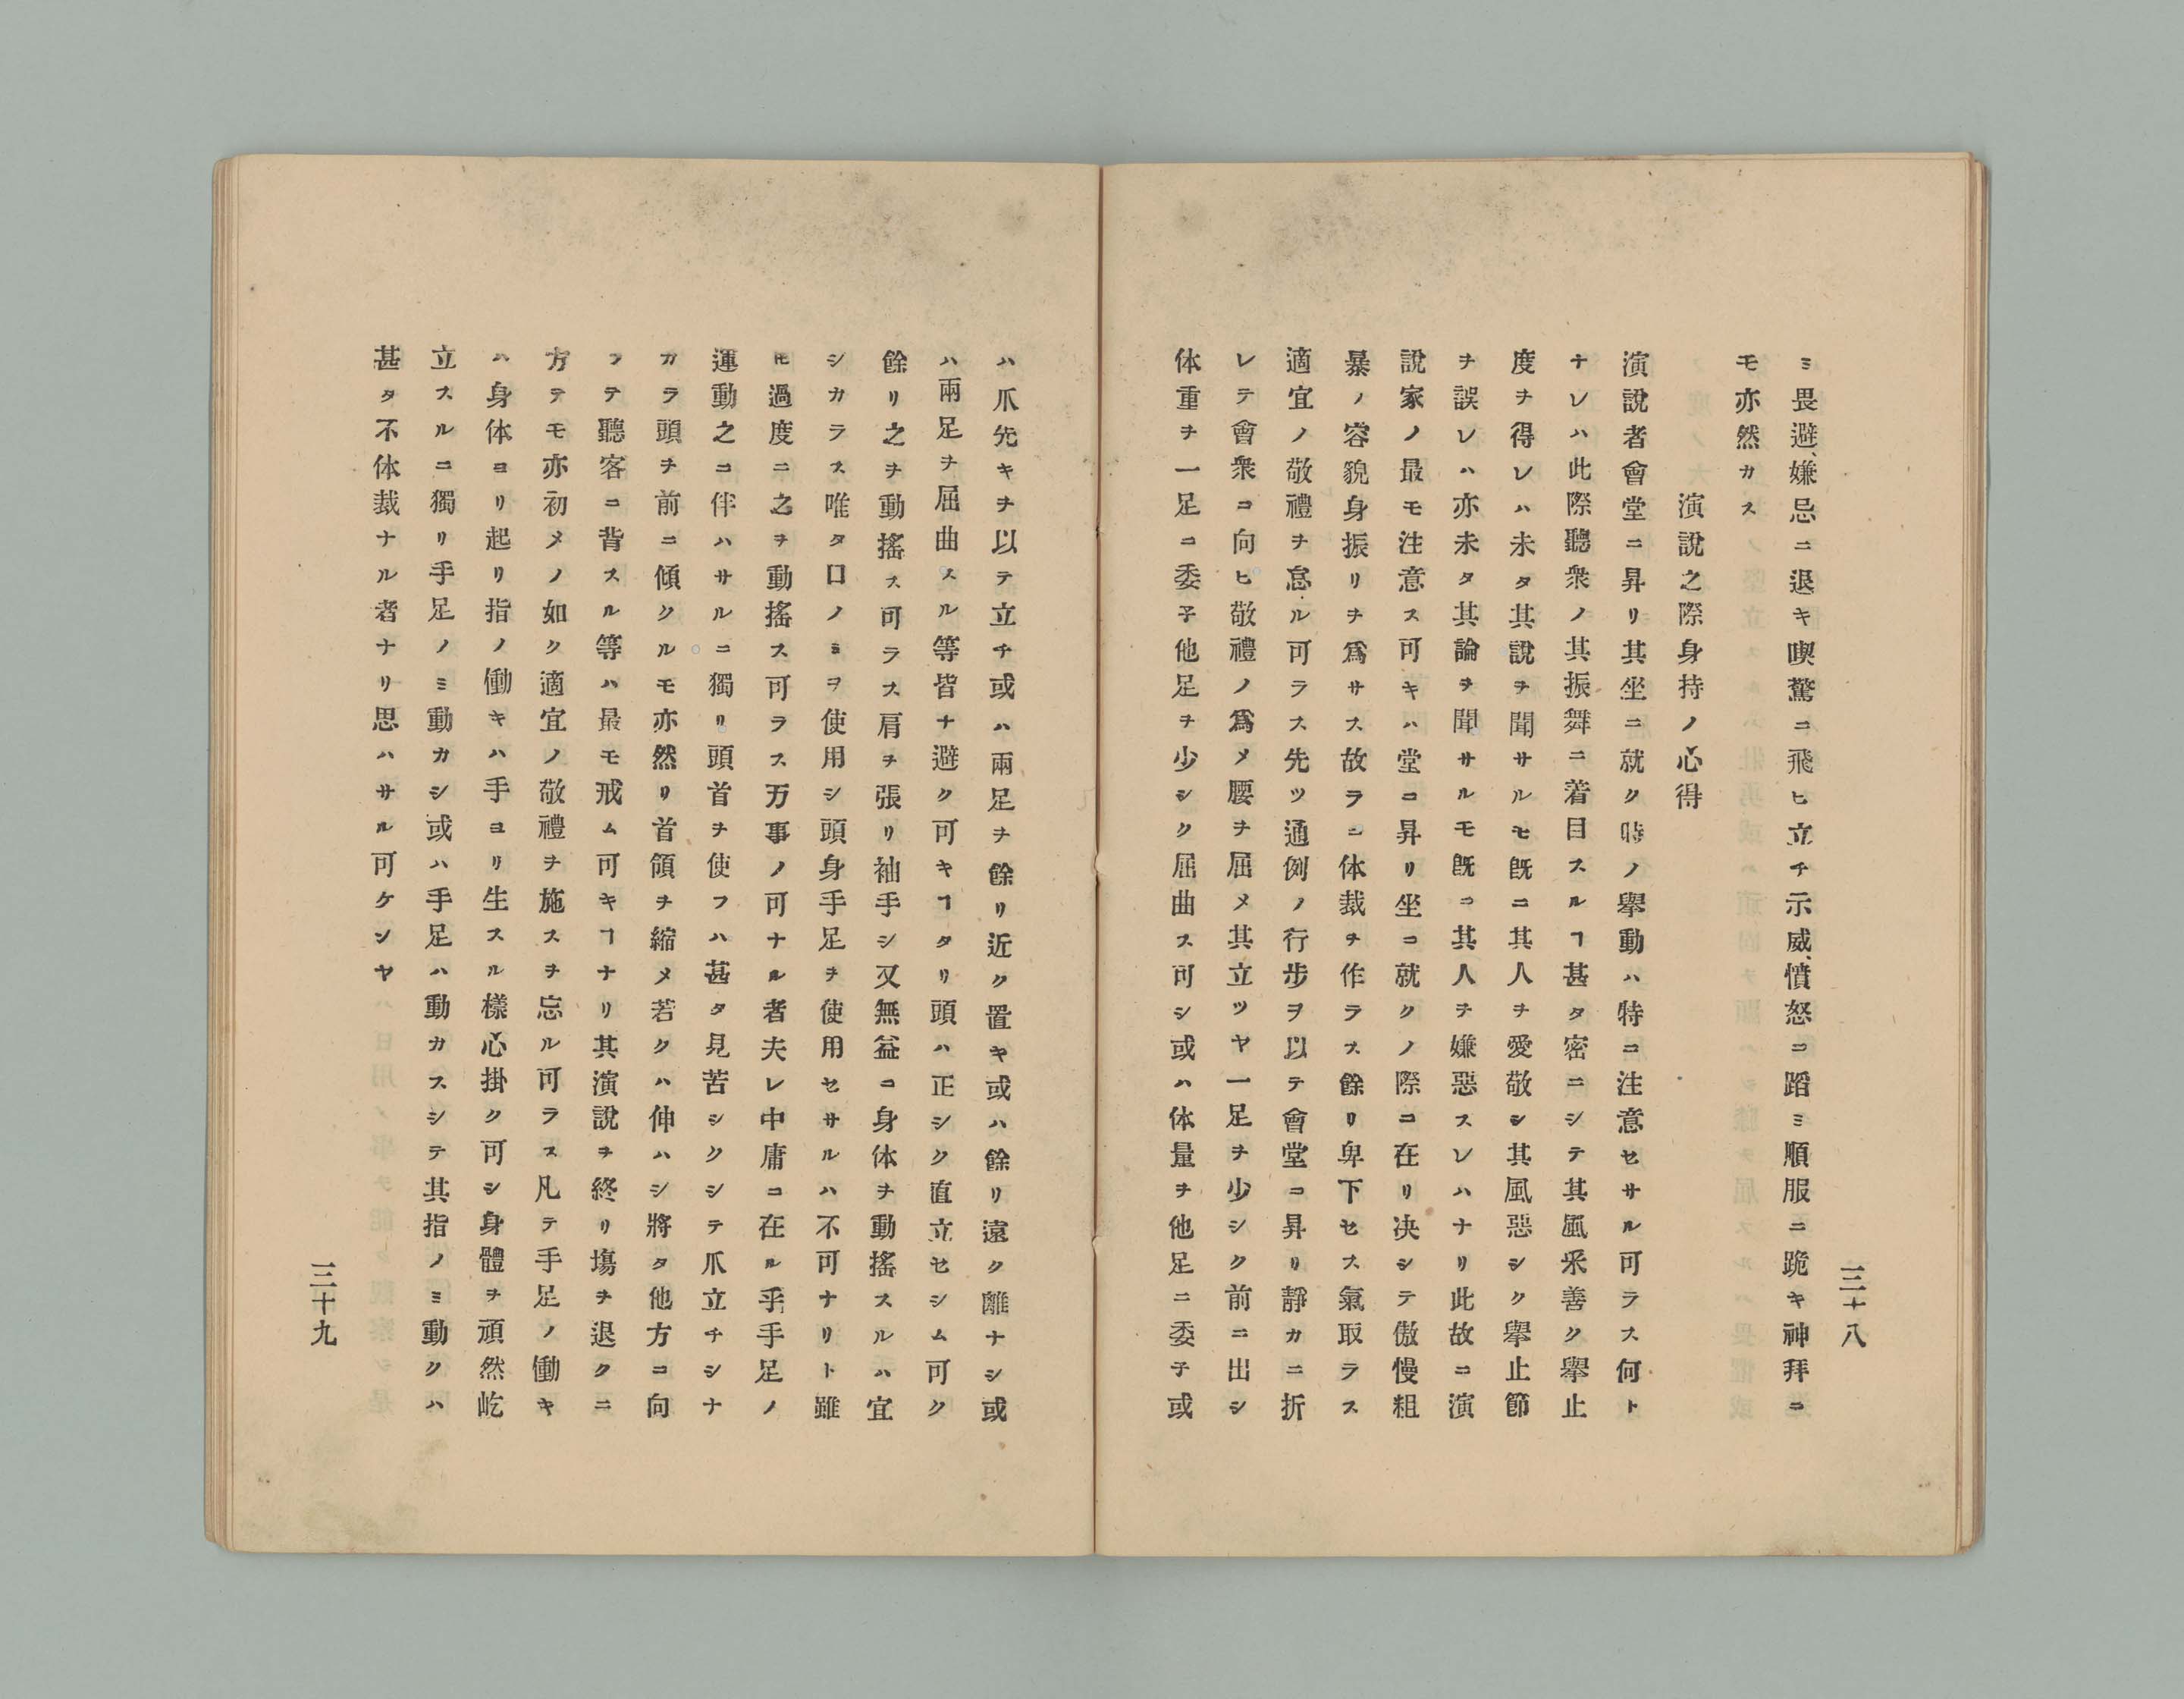 三十八
ミ畏避、嫌忌ニ退キ喫驚ニ飛ヒ立チ示威、憤怒ニ蹈ミ順服ニ跪キ神拜ニ
モ亦然カス
演說之際身持ノ心得
演說者會堂ニ昇リ其坐ニ就ク時ノ擧動ハ特ニ注意セサル可ラス何ト
ナレハ此際聽衆ノ其振舞ニ着目スルヿ甚タ密ニシテ其風采善ク擧止
度ヲ得レハ未タ其說ヲ聞サルモ既ニ其人ヲ愛敬シ其風惡シク擧止節
ヲ誤レハ亦未タ其論ヲ聞サルモ既ニ其人ヲ嫌惡スレハナリ此故ニ演
說家ノ最モ注意ス可キハ堂ニ昇リ坐ニ就クノ際ニ在リ决シテ傲慢粗
暴ノ容貌身振リヲ爲サス故ラニ体裁ヲ作ラス餘リ卑下セス氣取ラス
適宜ノ敬禮ヲ怠ル可ラス先ツ通例ノ行步ヲ以テ會堂ニ昇リ靜カニ折
レテ會衆ニ向ヒ敬禮ノ爲メ腰ヲ屈メ其立ツヤ一足ヲ少シク前ニ出シ
体重ヲ一足ニ委子他足ヲ少シク屈曲ス可シ或ハ体量ヲ他足ニ委子或
ハ爪先キヲ以テ立チ或ハ兩足ヲ餘リ近ク置キ或ハ餘リ遠ク離ナシ或
ハ兩足ヲ屈曲スル等皆ナ避ク可キヿタリ頭ハ正シク直立セシム可ク
餘リ之ヲ動搖ス可ラス肩ヲ張リ袖手シ又無益ニ身体ヲ動搖スルハ宜
シカラス唯タ口ノミヲ使用シ頭身手足ヲ使用セサルハ不可ナリト雖
𪜈過度ニ之ヲ動搖ス可ラス万事ノ可ナル者夫レ中庸ニ在ル乎手足ノ
運動之ニ伴ハサルニ獨リ頭首ヲ使フハ甚タ見苦シクシテ爪立チシナ
カラ頭ヲ前ニ傾クルモ亦然リ首領ヲ縮メ若クハ伸ハシ將タ他方ニ向
フテ聽客ニ背スル等ハ最モ戒ム可キヿナリ其演說ヲ終リ塲ヲ退クニ
方テモ亦初メノ如ク適宜ノ敬禮ヲ施スヲ忘ル可ラス凡テ手足ノ働キ
ハ身体ヨリ起リ指ノ働キハ手ヨリ生スル樣心掛ク可シ身體ヲ頑然屹
立スルニ獨リ手足ノミ動カシ或ハ手足ハ動カスシテ其指ノミ動クハ
甚タ不体裁ナル者ナリ思ハサル可ケンヤ
三十九